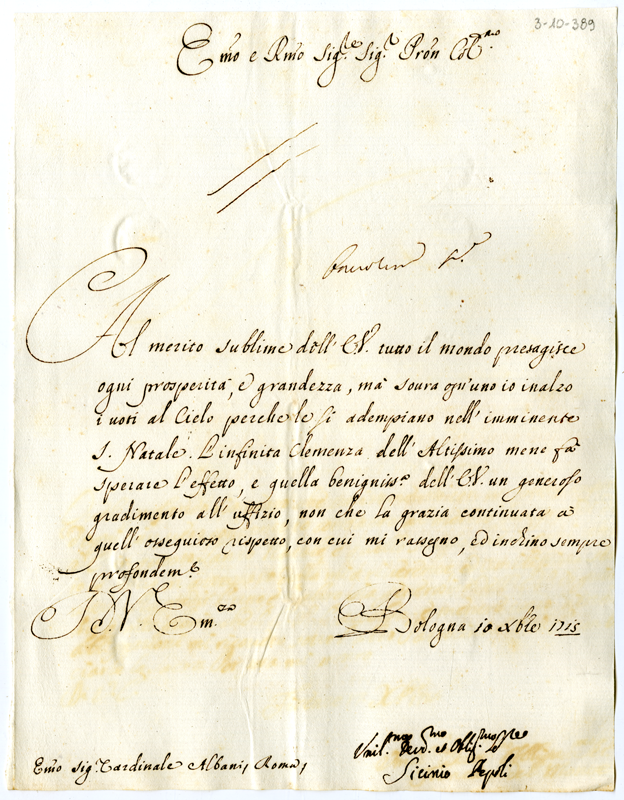 3-10-389
Emo e Rmo Sig.re Sig.r Pron Col.mo
Al merito sublime dell' E.V. tutto il mondo presagisce
ogni prosperità, e grandezza, mà soura ogn'uno io inalzo
i uoti al Cielo perche le si adempiano nell' imminente
S. Natale. L'infinita Clemenza dell' Altissimo mene fà
sperare l'effetto, e quella benigniss.a dell' E.V. un generoso
gradimento all' uffizio, non che la grazia continuata à
quell' ossequioso rispetto, con cui mi rassegno, ed inchino sempre
profondem.e
D. V. Em.za
Bologna 10 Xbre 1715
Vmil.mo Deuo.mo et Oblig.mo
Sicinio Pepoli
Emo Sig. Cardinale Albani, Roma,